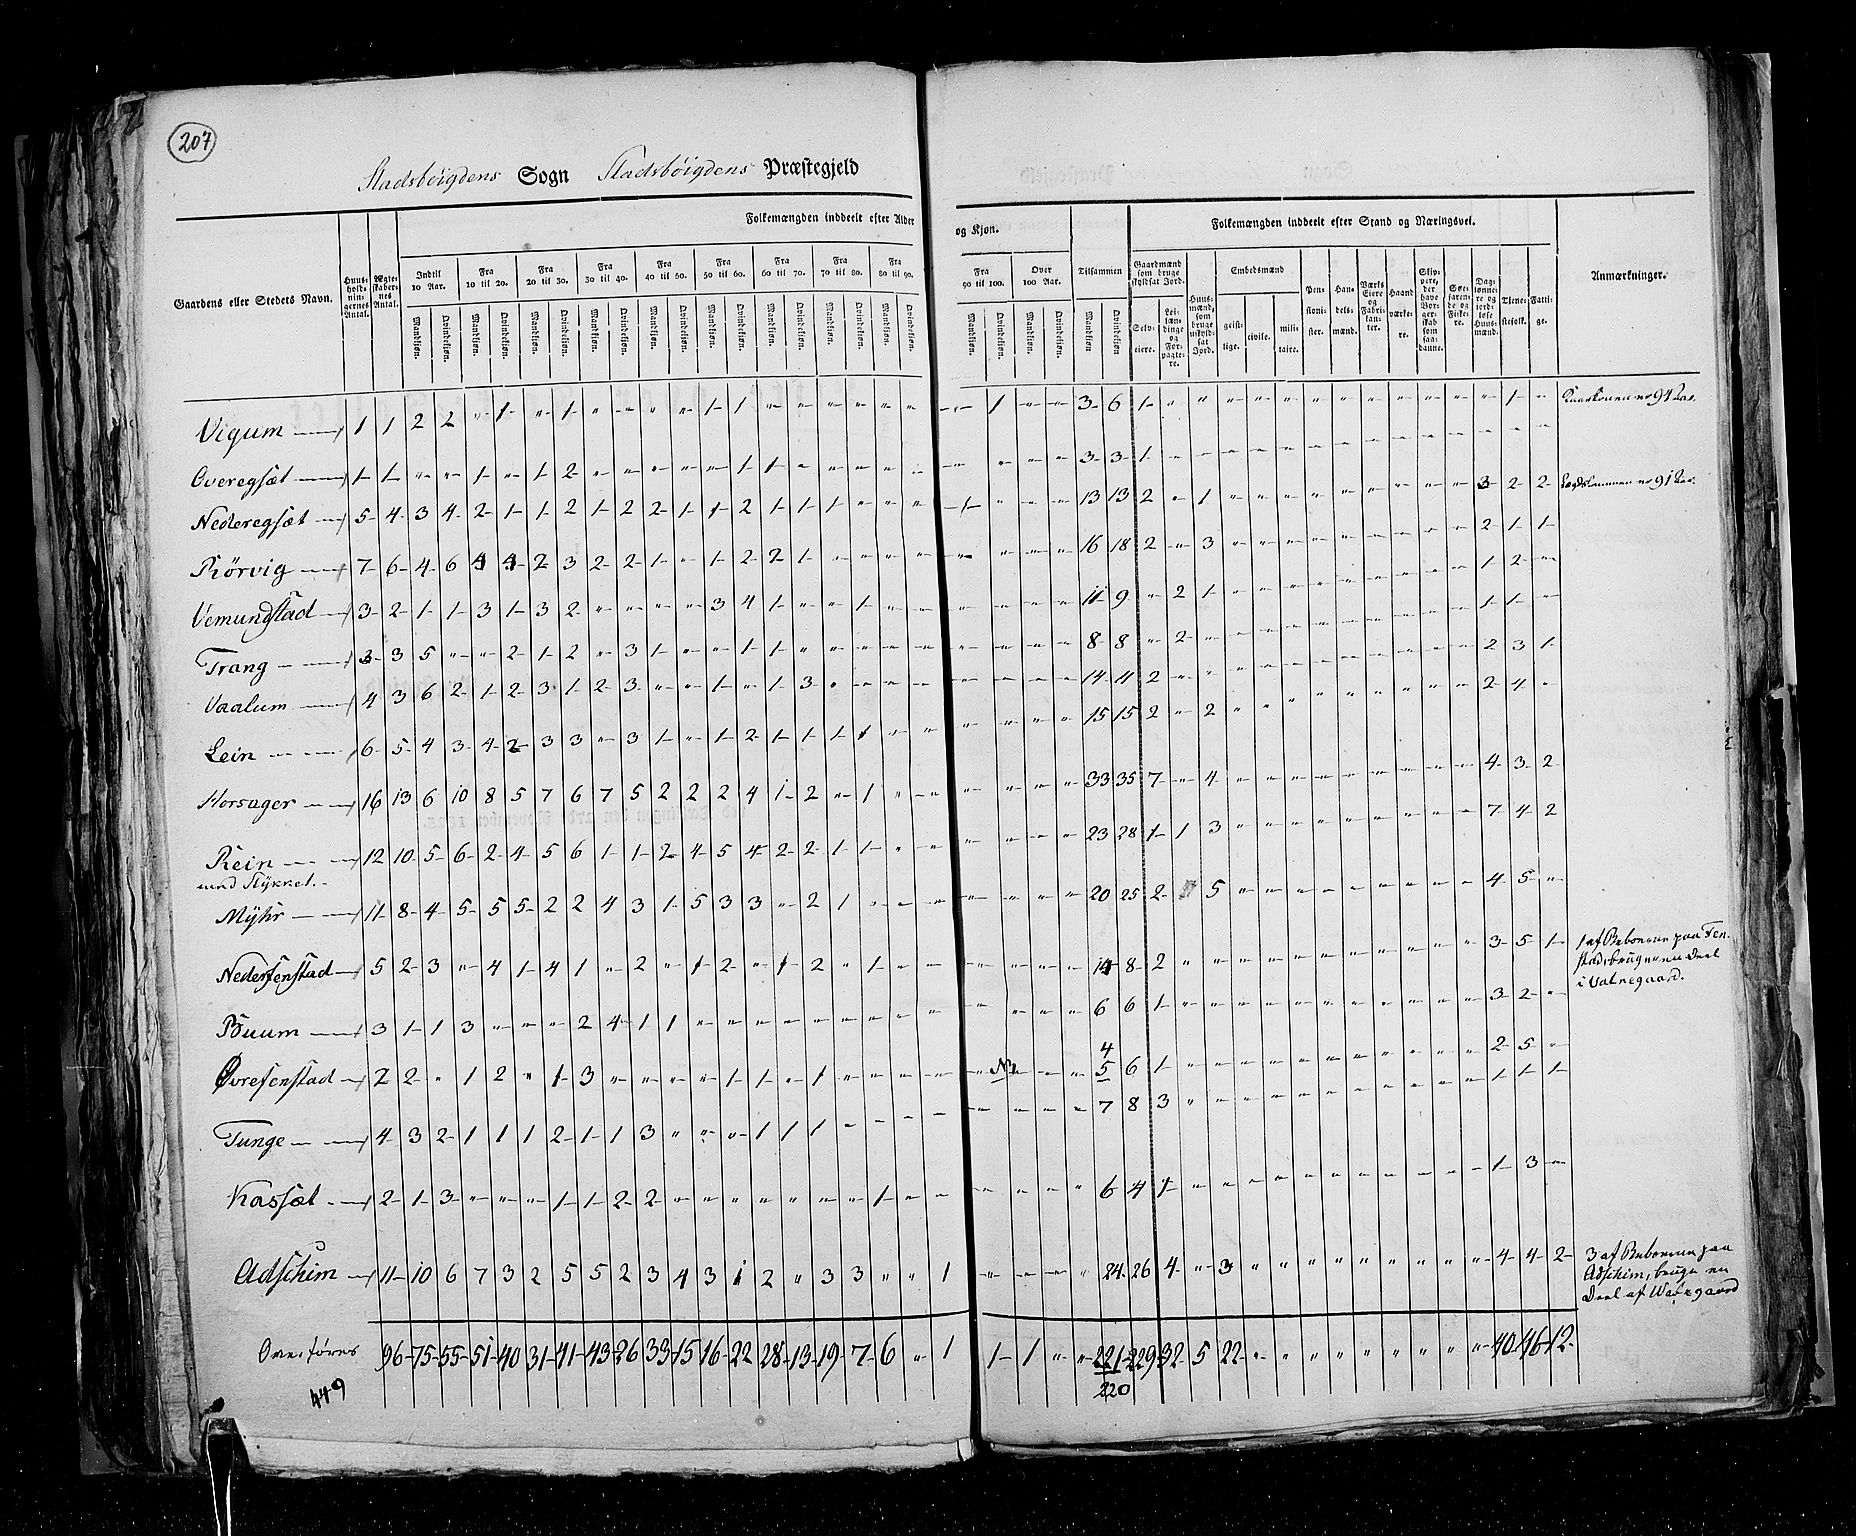 207
Stadsbøigdens Sogn Stadsbøigdens Præstegjeld
Folkemængden inddeelt efter Alder og Kjøn.
Folkemængden inddeelt efter Stand og Næringsvei.
Gaardens eller Stedets Navn.
Huusholdningernes Antal.
Ægteskabernes Antal.
Indtil 10 Aar.
Fra 10 til 20.
Fra 20 til 30.
Fra 30 til 40.
Fra 40 til 50.
Fra 50 til 60.
Fra 60 til 70.
Fra 70 til 80.
Fra 80 til 90.
Fra 90 til 100.
Over 100 Aar.
Tilsammen
Mandkiøn. Qvindekiøn.
Gaardmænd som bruge skyldsat Jord.
Selveiere.
Leilændinge og Forpagtere.
Huusmænd, som bruge uskyldsat Jord.
Embedsmænd
geistlige.
civile.
militaire.
Pensionister.
Handelsmænd.
Værks Eiere og Fabrikanter.
Haandværkere.
Skippere, der have Borgerskab som saadanne.
Søefarende og Fiskere.
Daglønnere og jordløse Huusmænd.
Tjenestefolk.
Fattige.
Anmærkninger.
Vigum 1 1 2 2 " 1 " 1 " " " " 1 1 " " " " " " " 1 " " 3 6 1 " " " " " " " " " " " " 1 "
Overegsæt 1 1 " " 1 " 1 2 " " " " " 1 1 " " " " " " " " " 3 3 1 " " " " " " " " " " " " " "
Nederegsæt 5 4 3 4 2 1 1 2 1 2 2 1 1 2 1 1 1 " " " 1 " " " 13 13 2 " 1 " " " " " " " " " 3 2 2
Rørvig 7 6 4 6 4 4 2 3 2 2 1 " 1 2 2 1 " " " " " " " " 16 18 2 " 3 " " " " " " " " " 2 1 1
Vemundstad 3 2 1 1 3 1 3 2 " " " " 3 4 1 " " 1 " " " " " " 11 9 " 2 1 " " " " " " " " " 1 2 "
Trang 3 3 5 " " 2 1 2 " 3 1 " " 1 1 " " " " " " " " " 8 8 " 2 " " " " " " " " " " 1 1 "
Vaalum 4 3 6 2 1 2 3 1 2 3 " " 1 " 1 3 " " " " " " " " 14 11 2 " " " " " " " " " " " 2 3 1
Lein 6 5 4 3 4 2 3 3 " 3 1 " 1 2 1 1 1 1 " " " " " " 15 15 2 " 2 " " " " " " " " " 2 4 "
Horsager 16 13 6 10 8 5 7 6 7 5 2 2 2 4 1 2 " 1 " " " " " " 33 35 7 " 4 " " " " " " " " " 4 3 2
Rein 12 10 5 6 2 4 5 6 1 1 2 4 5 4 2 2 1 1 " " " " " " 23 28 1 1 3 " " " " " " " " " 7 4 2
med Stykket.
Myhr 11 8 4 5 5 5 2 2 4 3 1 5 3 3 " 2 1 " " " " " " " 20 25 2 5 " " " " " " " " " 4 5 "
Nedrefenstad 5 2 3 " 4 1 4 1 " 2 " 1 2 " 1 2 " 1 " " " " " " 14 8 2 " " " " " " " " " " " 3 5 1
1 af Beboerne paa Fenstad, bruger en Deel
i Vatnegaard.
Buum 3 1 1 3 " " " 2 4 1 1 " " " " " " " " " " " " " 6 6 1 " " " " " " " " " " " 3 2 "
Øvrefenstad 2 2 " 1 2 " 1 3 " " " " 1 1 " 1 " " " " " " " 4 5 6 1 " " " " " " " " " " " 2 5 "
Tunge 4 3 2 1 1 1 2 1 1 3 " " " 1 1 1 " " " " " " " " 7 8 3 " " " " " " " " " " " 1 1 1
Kassæt 2 1 3 " " " 1 1 2 2 " " " " " " " 1 " " " " " " 6 4 1 " " " " " " " " " " " 1 3 "
Adschim 11 10 6 7 3 2 5 5 2 3 4 3 1 2 " 3 3 " " 1 " " " " 24 26 4 " 3 " " " " " " " " " 4 4 2
3 af Beboerne paa
Adschim, bruge en
Deel af Watnegaard
Overføres 96 75 55 51 40 31 41 43 26 33 15 16 22 28 13 19 7 6 " 1 1 1 " " 221 229 32 5 22 " " " " " " " " " 40 46 12
220
449